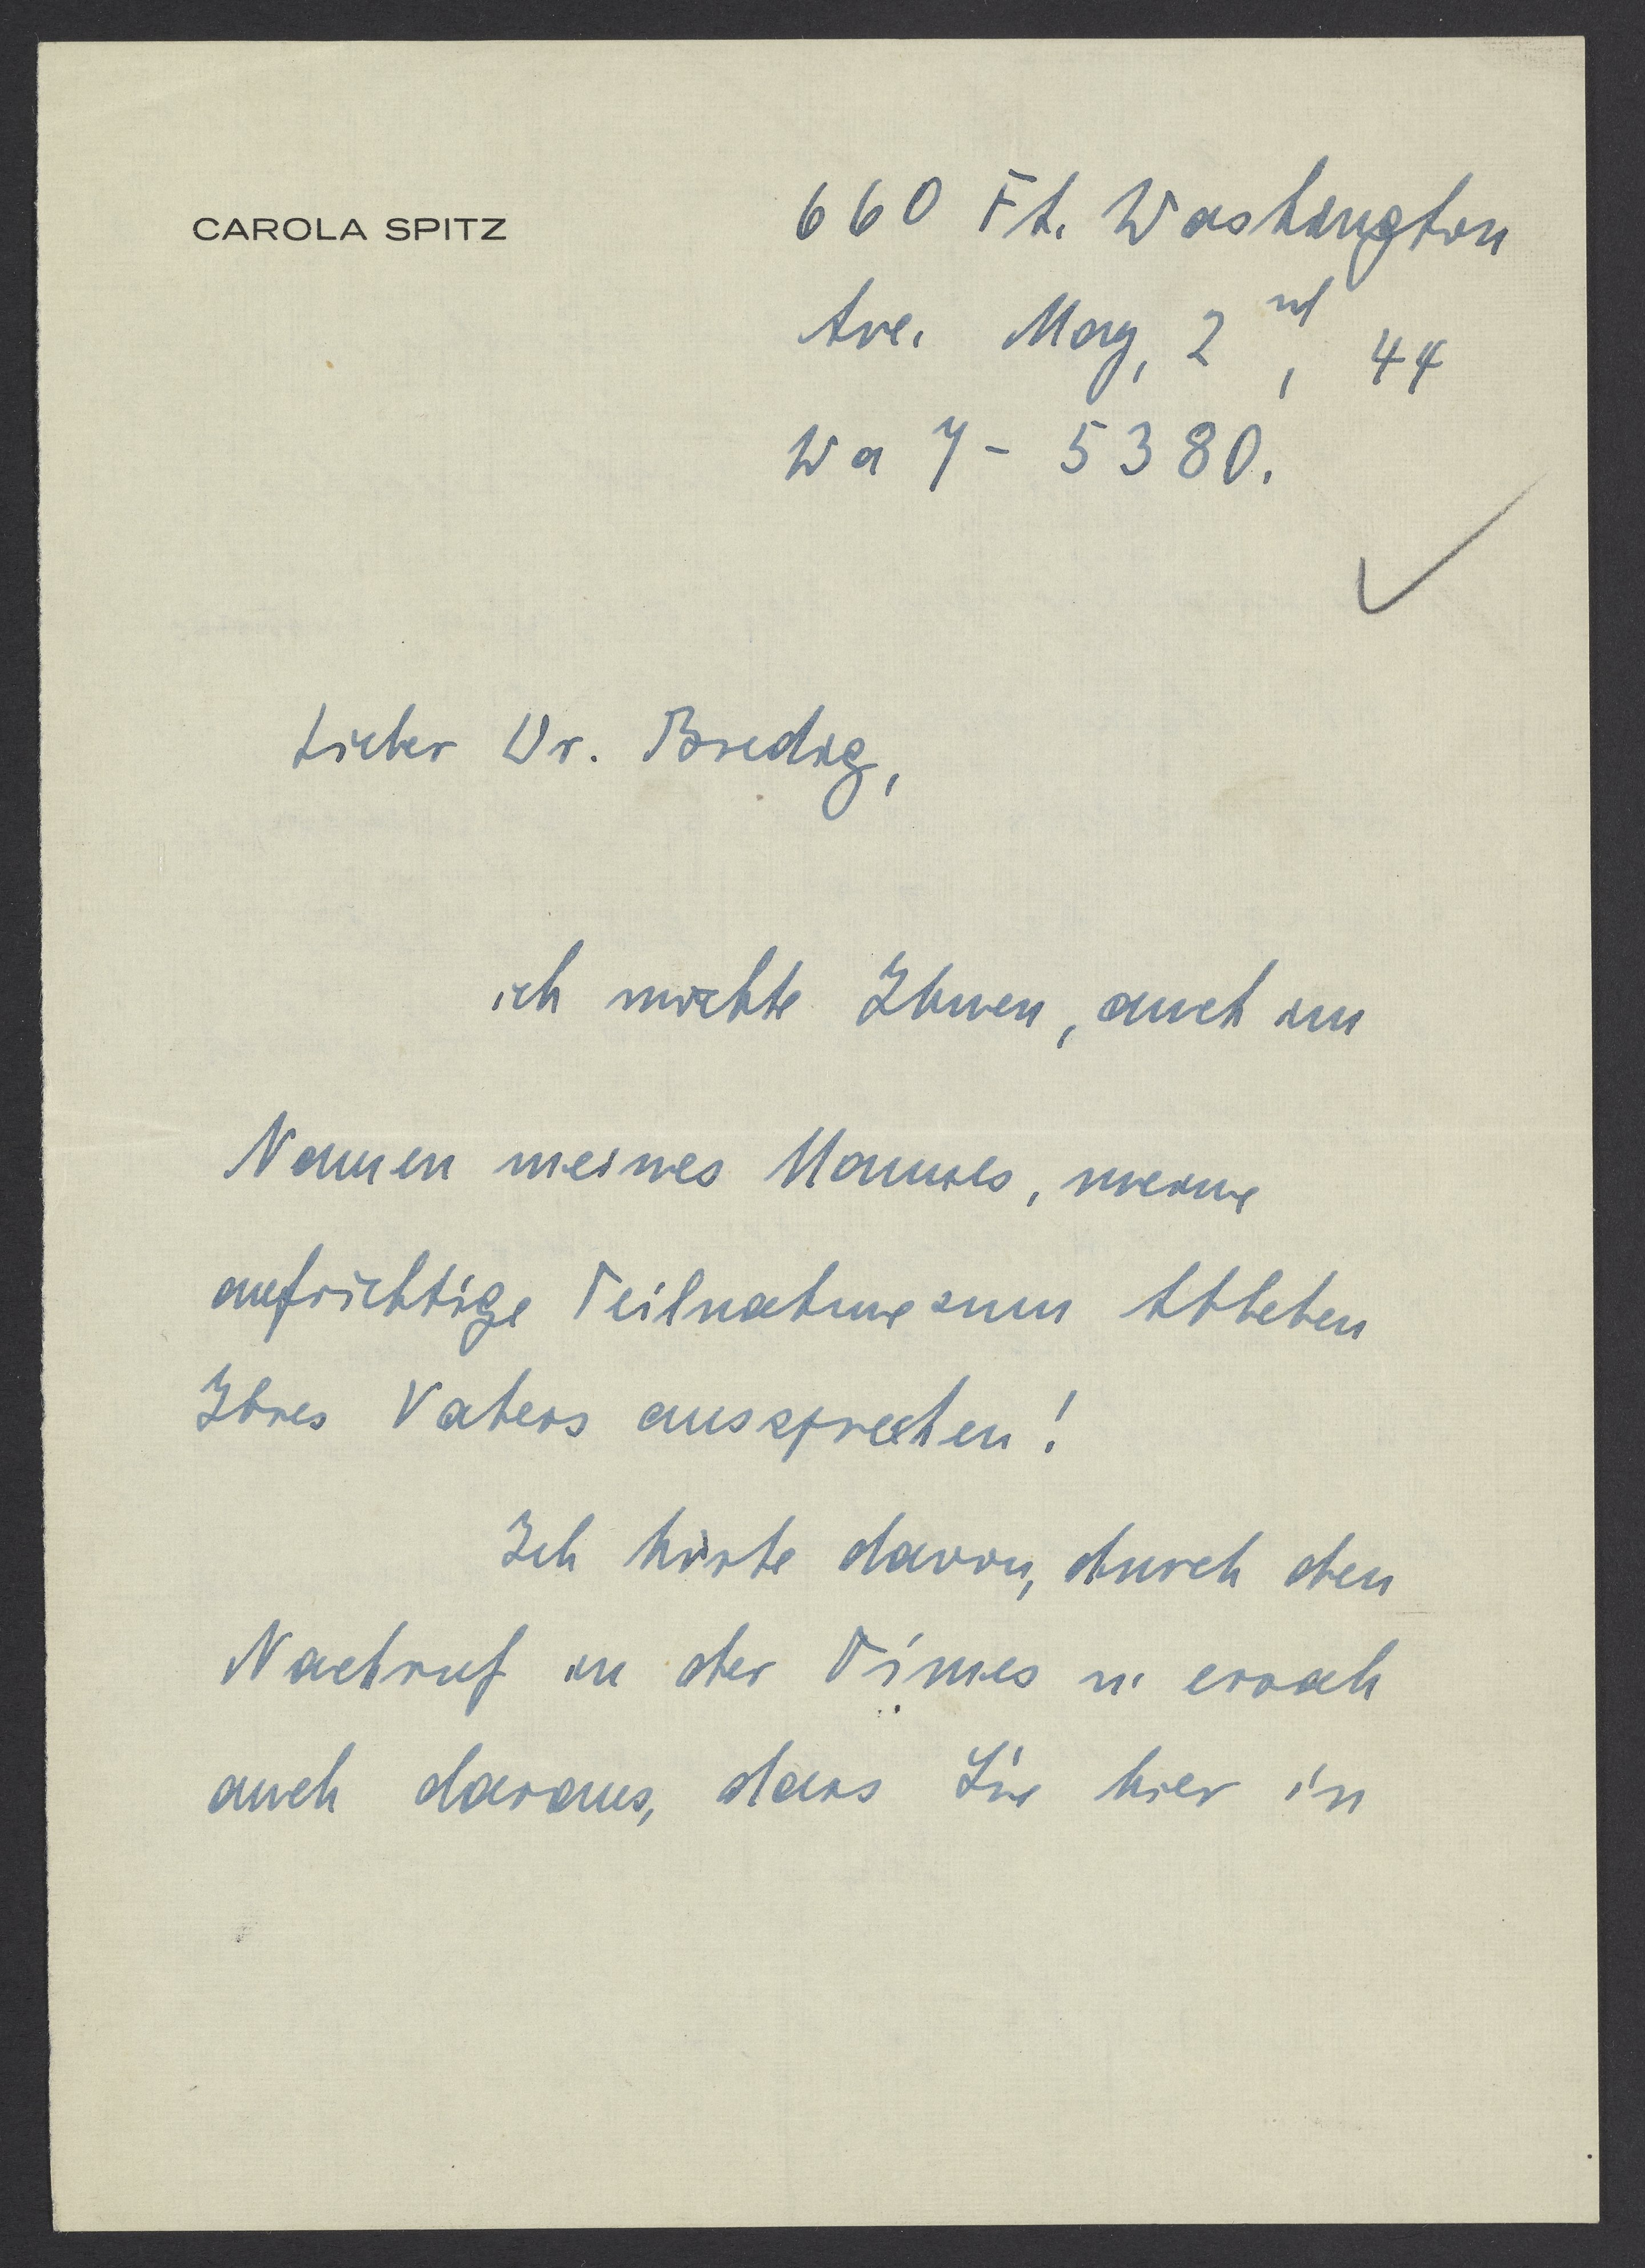 CAROLA SPITZ
660 Ft. Washington
Ave. May, 2nd, 44
Wa 7-5380.
Lieber Dr. Bredig,
ich möchte Ihnen, auch im
Namen meines Mannes, meine
aufrichtige Teilnahme zum Ableben
Ihres Vaters aussprechen!
Ich hörte davon, durch den
Nachruf in der Times u. ersah
auch daraus, dass Sie hier in